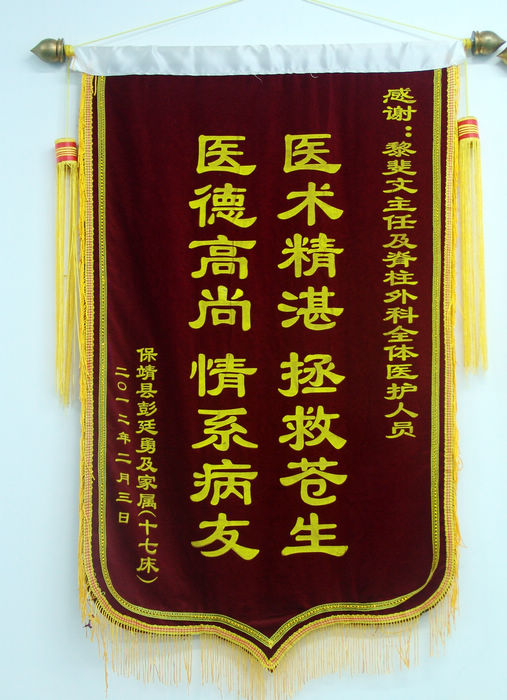 感谢：黎斐文主任及脊柱外科全体医护人员
医术精湛 拯救苍生
医德高尚 情系病友
保靖县彭廷勇及家属(十七床)
二〇一二年二月三日